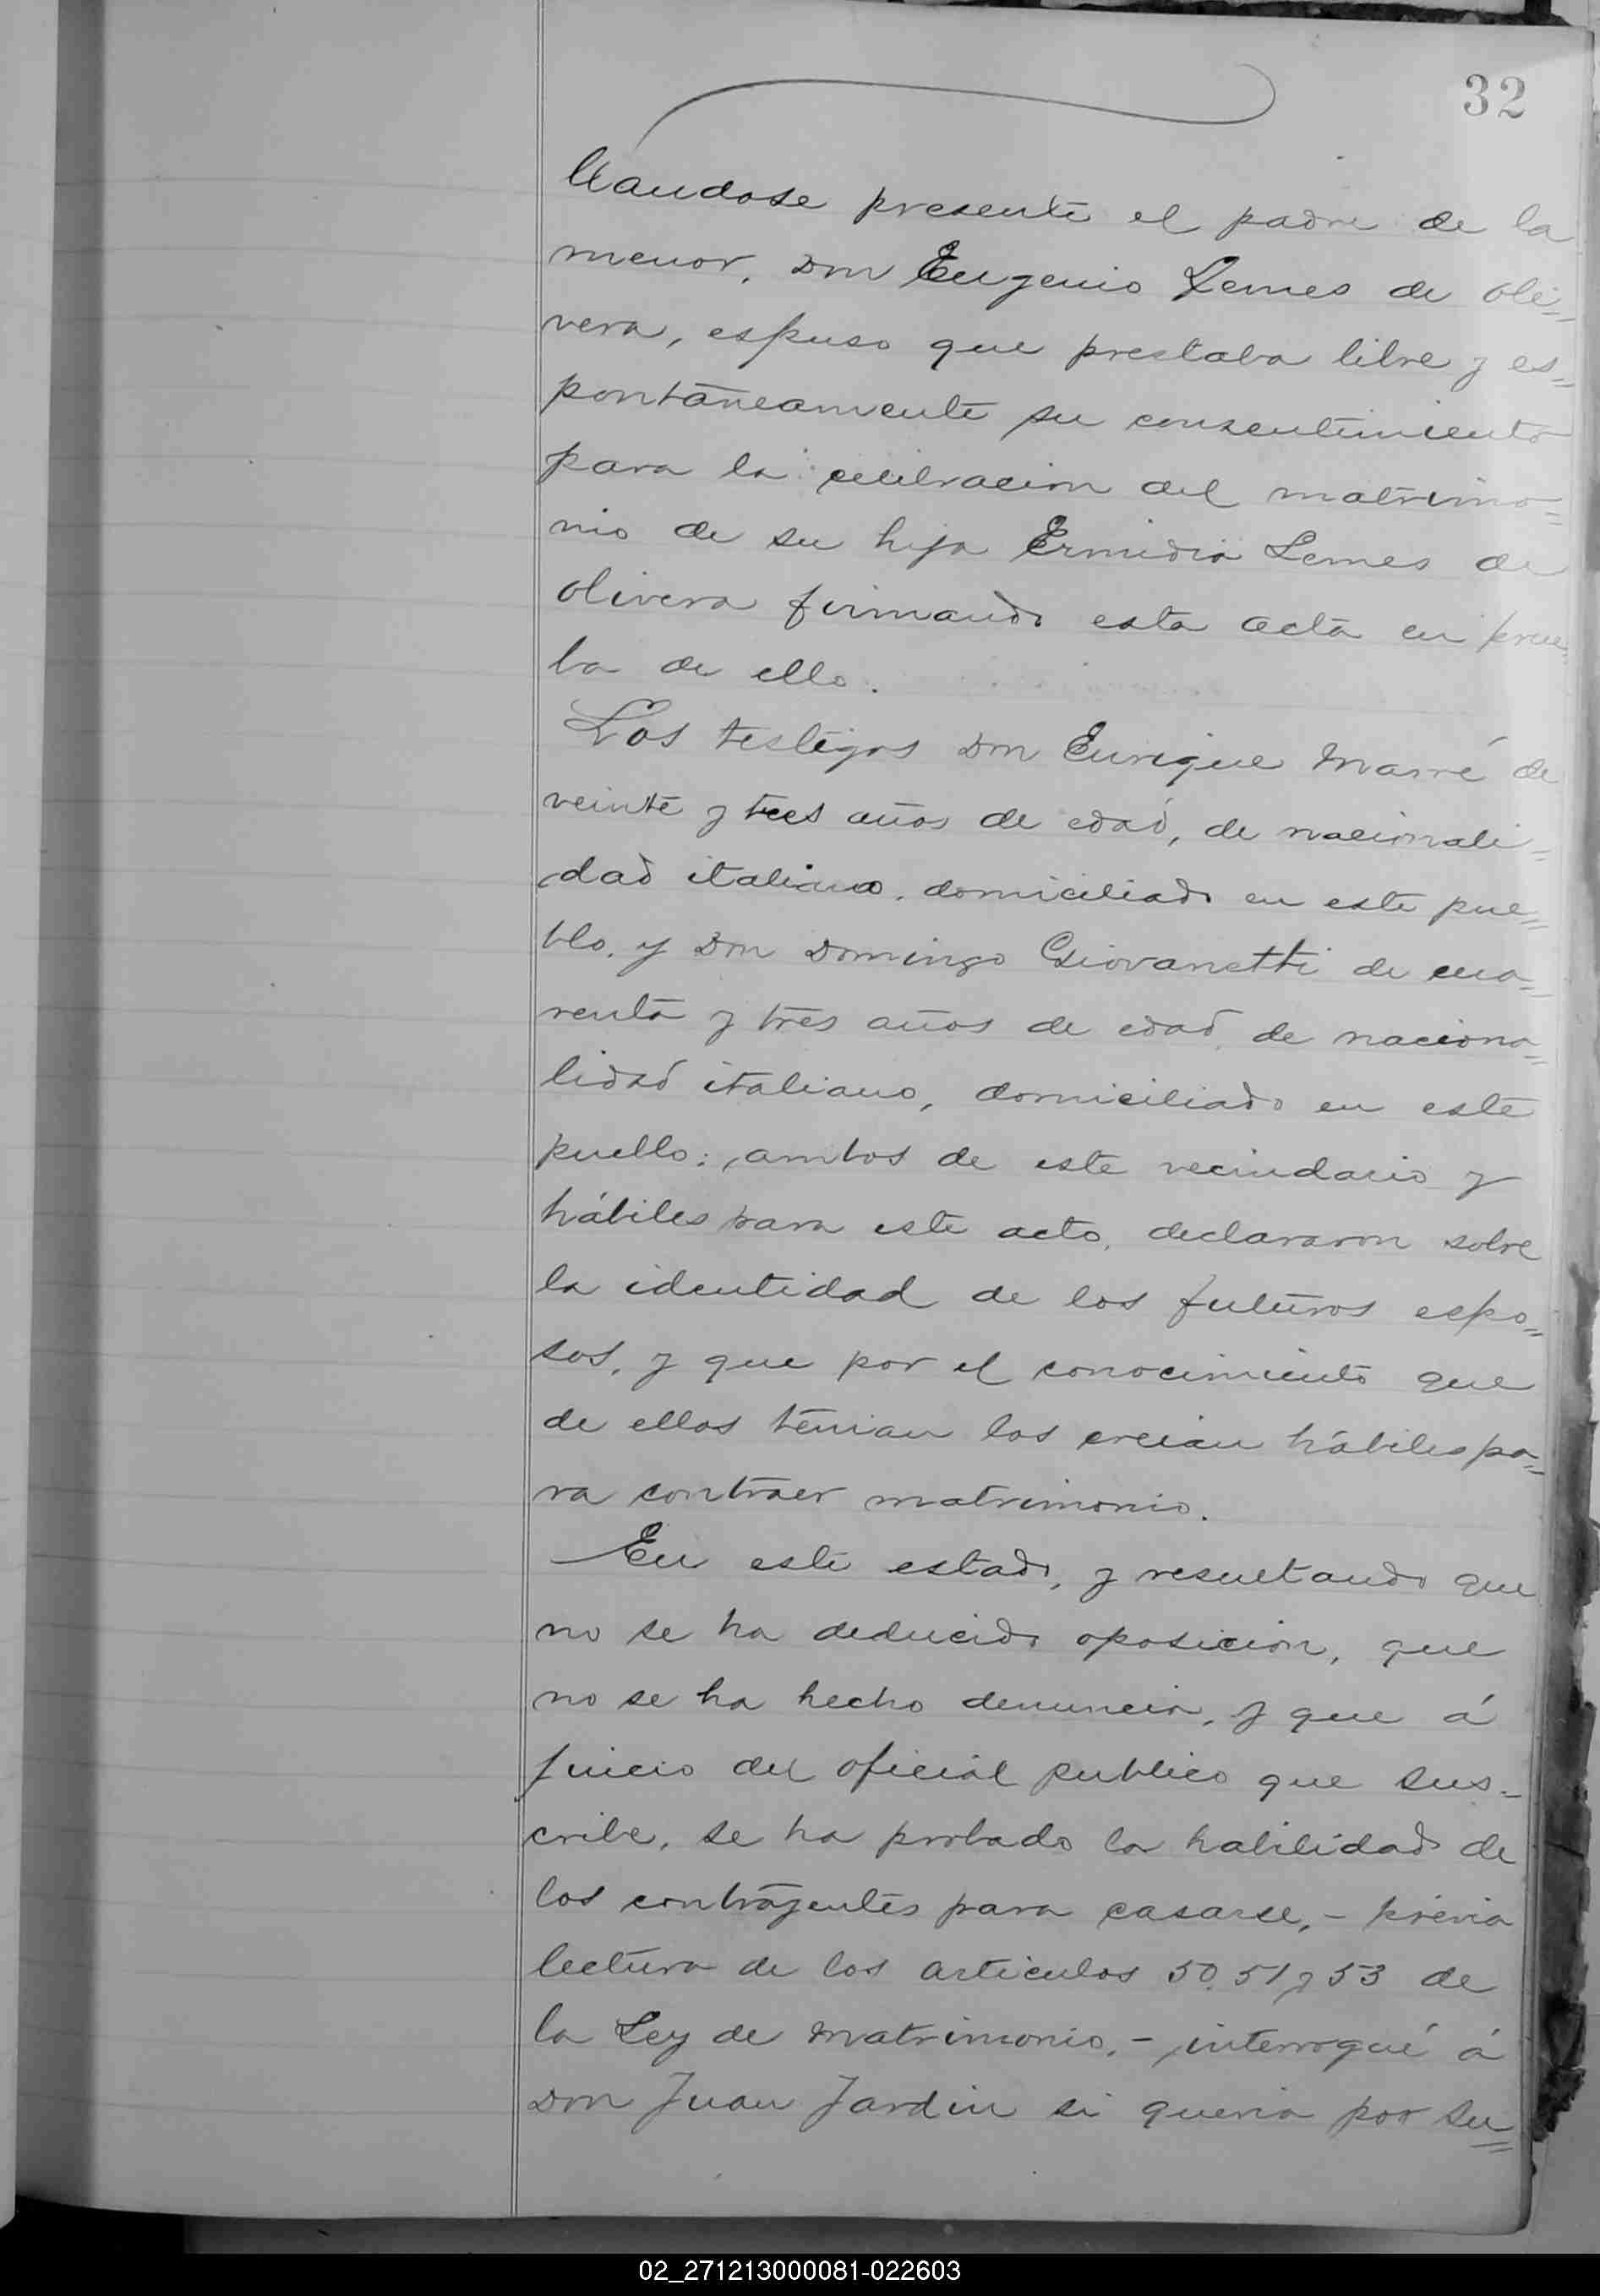 32
llandose presente el padre de la
menor, Don Eugenio Lemes de Oli=
vera, espuso que prestaba libre y es=
pontaneamente su consentimiento
para la celebracion del matrimo=
nio de su hija Ermidia Lemes de
Olivera firmando esta acta en prue=
ba de ello.
Los testigos Don Enrique Marré de
veinte y tres años de edad, de nacionali=
dad italiano, domiciliado en este pue=
blo, y Don Domingo Giovanetti de cua=
renta y tres años de edad, de naciona=
lidad italiano, domiciliado en este
pueblo: ambos de este vecindario y
hábiles para este acto, declararon sobre
la identidad de los futuros espo=
sos, y que por el conocimiento que
de ellos tenian los creian hábiles pa=
ra contraer matrimonio.
En este estado, y resultando que
no se ha deducido oposicion, que
no se ha hecho denuncia, y que á
juicio del oficial publico que sus-
cribe, se ha probado la habilidad de
los contrayentes para casarse,- prévia
lectura de los articulos 50. 51 y 53 de
la Ley de Matrimonio,- interrogué á
Don Juan Jardin si queria por su=
02_271213000081-022603